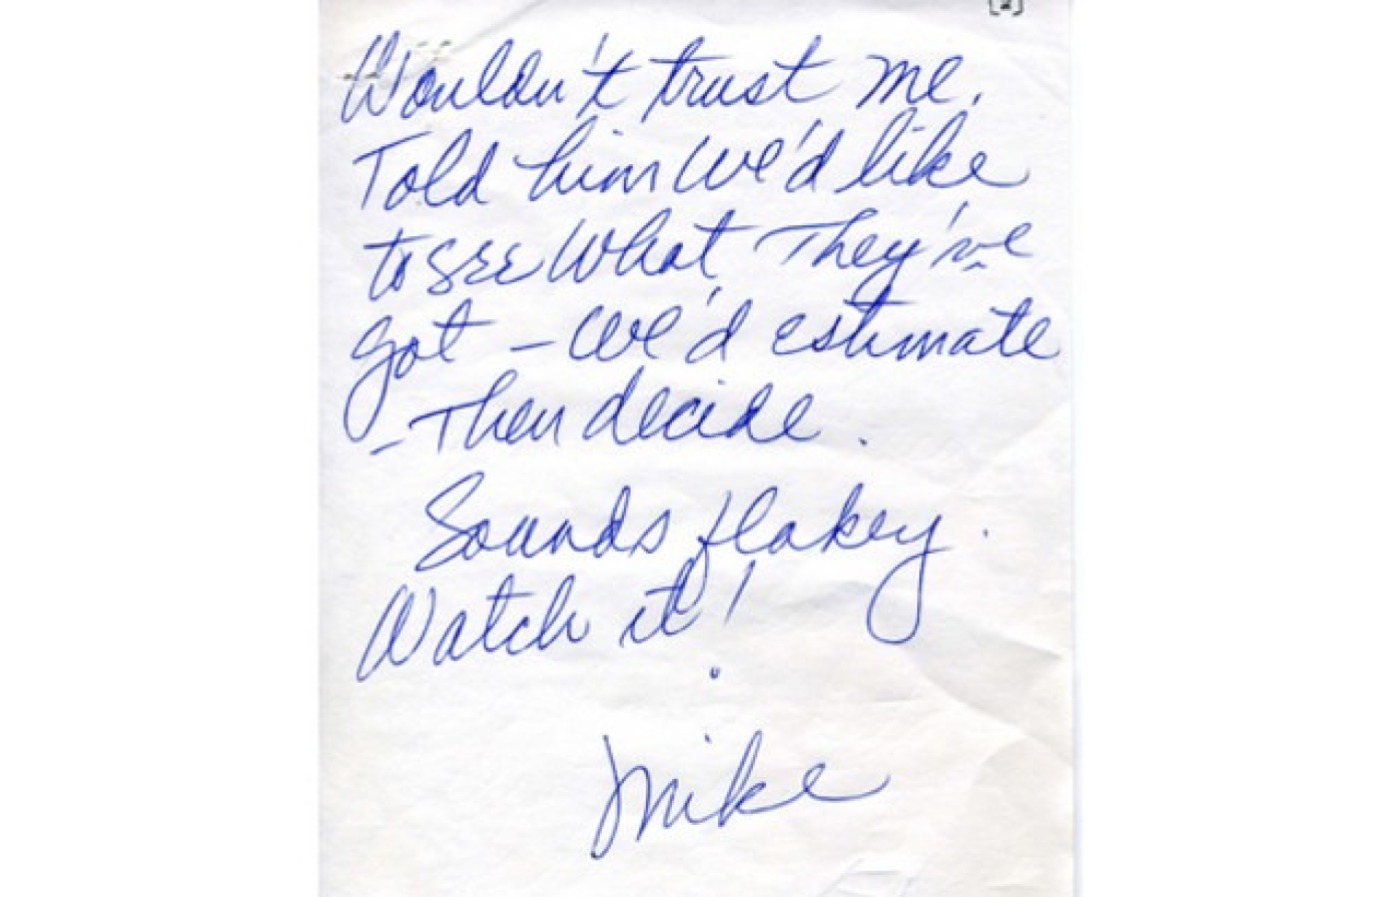 [2]
Wouldn't trust me.
Told him we'd like
to see what they've
got – we'd estimate
– Then decide.
Sounds flakey.
Watch it!
Mike